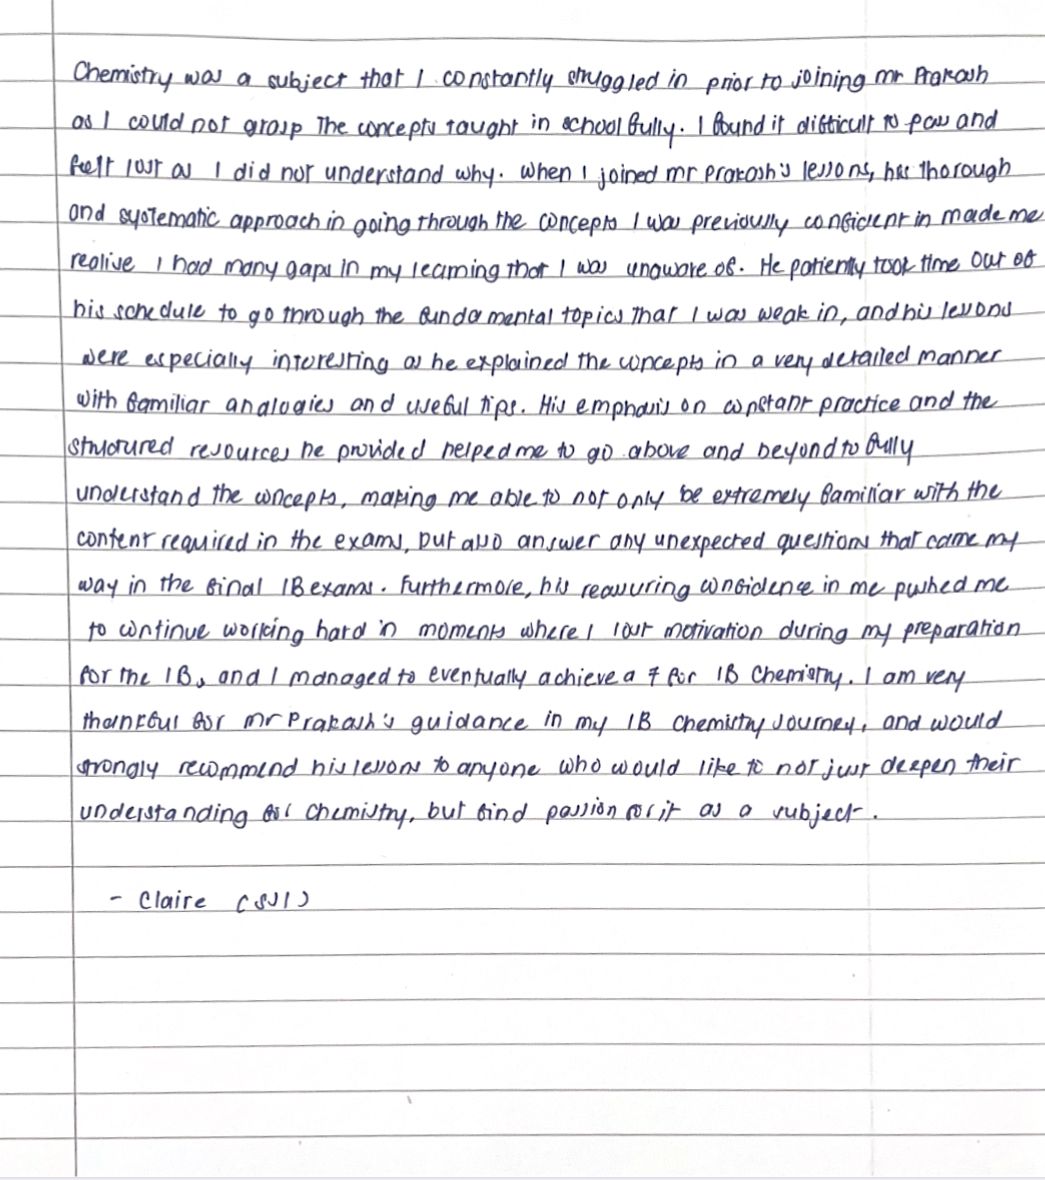 Chemistry was a subject that I constantly struggled in prior to joining mr Prakash
as I could not grasp The concepts taught in school fully. I found it difficult to pass and
felt lost as I did not understand why. When I joined mr Prakash's lessons, his thorough
and systematic approach in going through the concepts I was previously confident in made me
realise I had many gaps in my learning that I was unaware of. He patiently took time out of
his schedule to go through the fundamental topics that I was weak in, and his lessons
were especially interesting as he explained the concepts in a very detailed manner
with familiar analogies and useful tips. His emphasis on constant practice and the
structured resources he provided helped me to go above and beyond to fully
understand the concepts, making me able to not only be extremely familiar with the
content required in the exams, but also answer any unexpected questions that came my
way in the final IB exams. Furthermore, his reassuring confidence in me pushed me
to continue working hard in moments where I lost motivation during my preparation
for the IB, and I managed to eventually achieve a 7 for IB Chemistry. I am very
thankful for mr Prakash's guidance in my IB Chemistry Journey, and would
strongly recommend his lessons to anyone who would like to not just deepen their
understanding for Chemistry, but find passion for it as a subject.
- Claire (SJI)